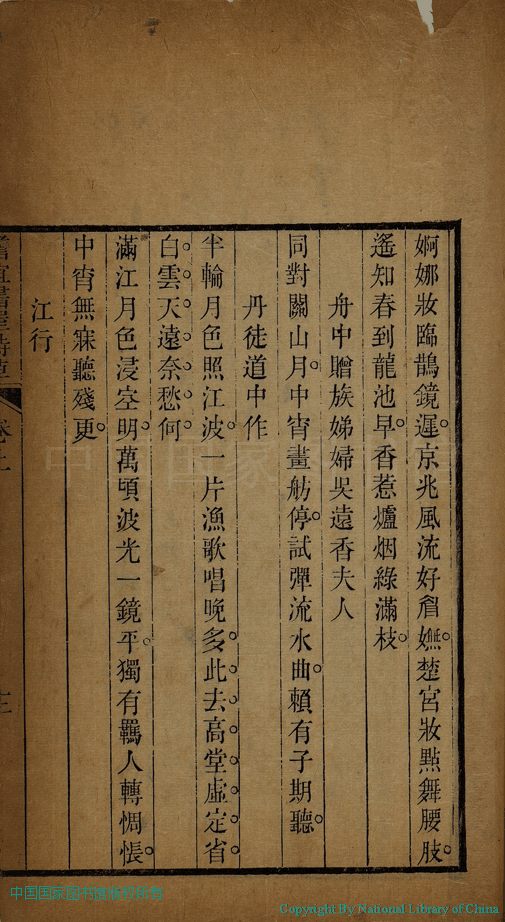 婀娜妝臨鵲鏡遲京兆風流好畫嫵楚宮妝點舞腰肢
遙知春到龍池早香惹爐烟綠滿枝
舟中贈族娣婦吳遠香夫人
同對關山月中宵畫舫停試彈流水曲賴有子期聽
丹徒道中作
半輪月色照江波一片漁歌唱晚多此去高堂虛定省
白雲天遠奈愁何
滿江月色浸空明萬頃波光一鏡平獨有羈人轉惆悵
中宵無寐聽殘更
江行
Copyright By National Library of China